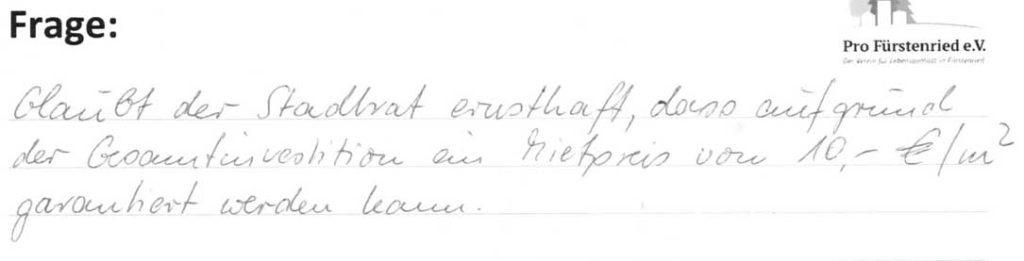 Frage:
Pro Fürstenried e.V.
Der Verein für Lebensqualität in Fürstenried
Glaubt der Stadtrat ernsthaft, dass aufgrund
der Gesamtinvestition ein Mietpreis von 10,- €/m²
garantiert werden kann.